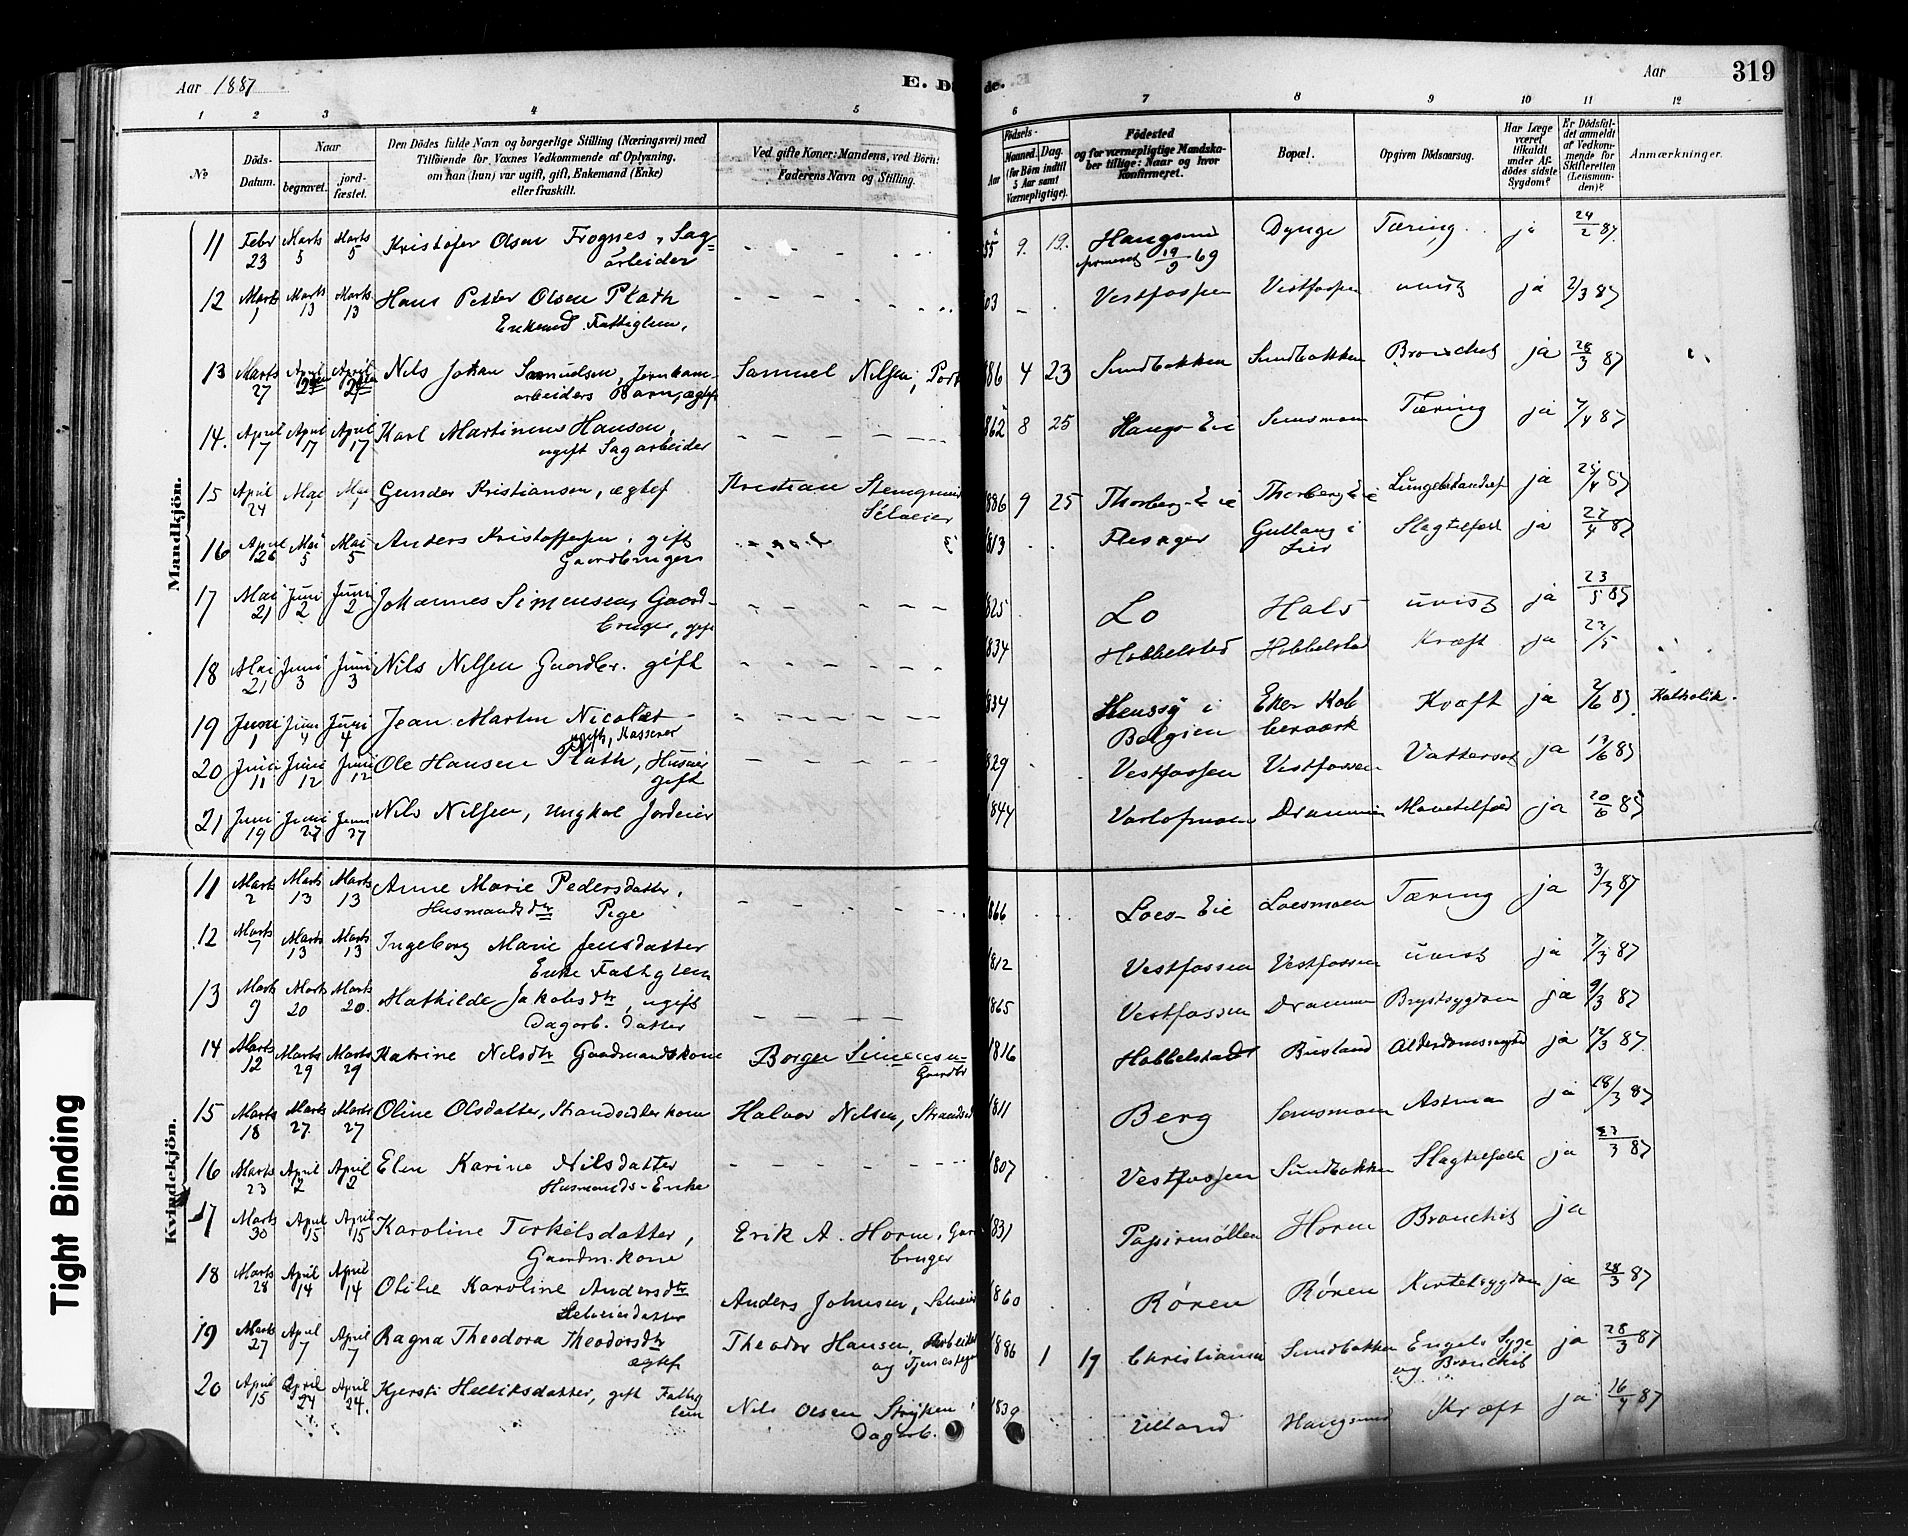 Aar 1887 E. Dö de. Aar 319
1 2 3 4 5 6 7 8 9 10 11 12
No
Döds-Datum.
Naar
begravet.
jord-fæstet.
Den Dödes fulde Navn og borgerlige Stilling (Næringsvei) med
Tilföiende for Voxnes Vedkommende af Oplysning,
om han (hun) var ugift, gift, Enkemand (Enke)
eller fraskilt.
Ved gifte Koner: Mandens, ved Börn:
Faderens Navn og Stilling.
Födsels-
Aar Maaned. Dag.
(for Börn indtil
5 Aar samt
Værnepligtige).
Födested
og for værnepligtige Mandska-
ber tillige: Naar og hvor
konfirmeret.
Bopæl.
Opgiven Dödsaarsag.
Har Læge
været
tilkaldt
under Af-
dödes sidste
Sygdom?
Er Dödsfal-
det anmeldt
af Vedkom-
mende for
Skifteretten
(Lensman-
den)?
Anmærkninger.
Mandkjön.
11 Febr 23 Marts 5 Marts 5 Kristofer Olsen Frognes, Sag= arbeider 55 9. 19. Haugsund 19/9 69 Dynge Tæring ja 24/2 87.
12 Marts 1 Marts 13 Marts 13 Hans Petter Olsen Plath Enkemd. Fattiglem, 03 Vestfossen Vestfossen uvist ja 2/3 87
13 Marts 27 April April Nils Johan Samuelsen, arbeiders Barn, ægtef Samuel Nilsen, 886 4 23 Sundbakken Sundbakken Bronchit ja 28/3 87
14. April 7 April 17 April 17 Karl Martinius Hansen, ugift Sagarbeider 862 8 25 Haugs-Eie Semsmoen Tæring ja 7/4 87
15 April 24 Mai 1 Mai 1 Gunder Kristiansen, ægtef Kristian Selveier 886 9 25 Thorberg-Eie Thorberg Eie ja 25/4 87
16 April 26 Mai 5 Mai 5 Anders Kristoffersen, gift Gaardbruger 813 Flesager Gullaug i Lier Slagtilfæld ja 27/4 87
17 Mai 21 Juni 2 Juni 2 Johannes Simensen, Gaard- bruger, gift 825 Lo Hals uvist ja 23/5 87
18 Mai 21 Juni 3 Juni 3 Nils Nilsen Gaardbr. gift 834 Hobbelstad Hobbelstad Kræft ja 23/5
19 Juni 1 Juni 4 Juni 4 Jean Martin Nicolæt ugift, Kasserer 834 i Belgien Eker Kob berværk Kræft ja 2/6 87. Katholik.
20 Juni 11 Juni 12 Juni 12 Ole Hansen Plath, Husmd gift 829 Vestfossen Vestfossen Vattersot ja 13/6 87
21 Juni 19 Juni 27 Juni 27 Nils Nilsen, Ungkal Jordeier 1844 Varlofmoen Drammen Mavetilfæld ja 20/6 87
Kvindekjön.
11 Marts 2 Marts 13 Marts 13 Anne Marie Pedersdatter, Husmandsdtr Pige 866 Loes-Eie Loesmoen Tæring ja 3/3 87
12 Marts 7 Marts 13 Marts 13 Ingeborg Marie Jensdatter Enke Fattiglem 1812 Vestfossen Vestfossen uvist ja 7/3 87
13 Marts 9 Marts 20 Marts 20. Mathilde Jakobsdtr, ugift Dagarb. datter 1865 Vestfossen Drammen Brystsygdom ja 9/3 87
14 Marts 12 Marts 29 Marts 29 Katrine Nilsdtr Gaardmandskone Borger Simensen Gaardbr 1816 Hobbelstad Busland Alderdomssvaghed ja 12/3 87.
15 Marts 18 Marts 27. Marts 27 Oline Olsdatter, Strandsidderkone Halvor Nilsen, Strandsid 1811 Berg Semsmoen Astma ja 18/3 87
16 Marts 23 April 2 April 2 Elen Karine Nilsdatter Husmands-Enke 1807 Vestfossen Sundbakken Slagtilfælde ja 23/3 87
17 Marts 30 April 15 April 15 Karoline Torkelsdatter, Gaardm. kone Erik A. Horne, Gaar bruger 1831 Papirmøllen Horen Bronchit ja
18 Marts 28 April 14 April 14 Otilie Karoline Andersdtr Selveierdatter Anders Johnsen, Selveier 1860 Røren Røren Kirtelsygdom ja 28/3 87
19 Marts 27 April 7 April 7 Ragna Theodora Theodorsdtr ægtef Theodor Hansen, Arbeider og 1886 1 17 Christiania Sundbakken Engelsk Syge og Bronchit ja 28/3 87
20 April 15 April 24 April 24. Kjersti Helliksdatter, gift Fattig lem Nils Olsen Stryken, Dagarb. 1839 Ulland Haugsund Kræft ja 16/4 87
Tight Binding